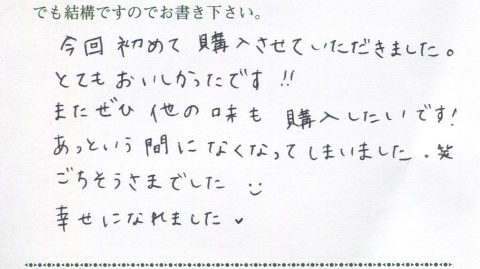 でも結構ですのでお書き下さい。
今回初めて購入させていただきました。
とてもおいしかったです!!
またぜひ他の味も購入したいです!
あっという間になくなってしまいました。笑
ごちそうさまでした
幸せになれました